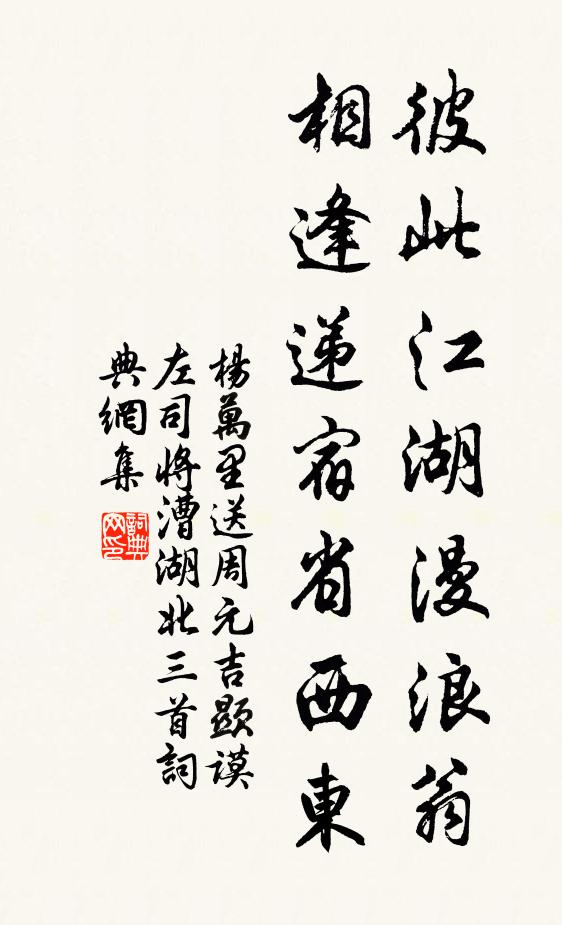 彼此江湖漫浪翁
相逢递宿省西東
楊萬里送周元吉顯謨
左司將漕湖北三首詞
典網集
詞典网印